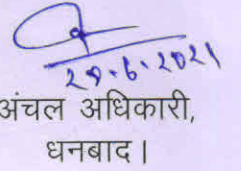 29.6.2021
अंचल अधिकारी,
धनबाद।